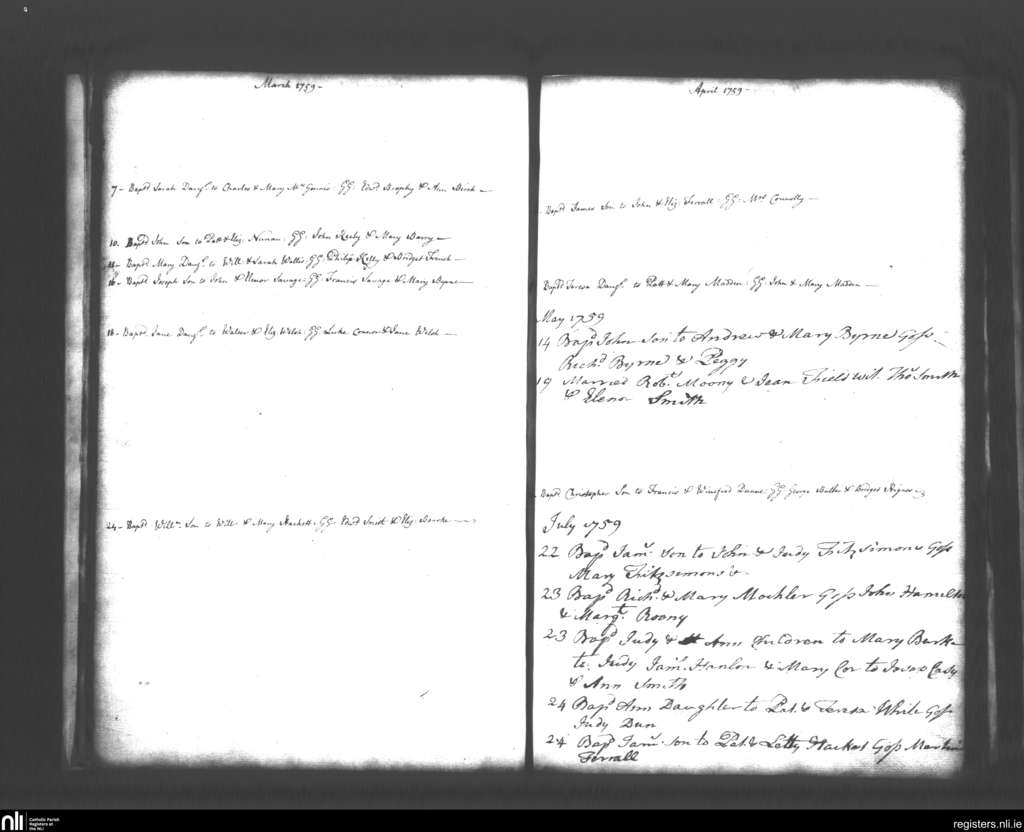 March 1759 -
7 - Bapd Sarah Daugr. to Charles & Mary Mc Gennis: GG: & Ann Birch -
10. Bapd John Son to Patt & Eliz: Nunan: GG: John Keely & Mary Darcy -
Bapd Mary Daugr. to Will: & Sarah Wallis: GG: Philip Kelly & Bridget French -
16 - Bapd Joseph Son to John & Elenor Savage: GG: Francis Savage & Mary Byrne -
18 - Bapd Jane Daugr. to Walter & Eliz: Welsh: GG: Luke Connor & Jane Welsh -
24 - Bapd Willm. Son to Will: & Mary Hackett: GG: & Eliz: Bourke -
April 1759 -
Bapd James Son to John & Eliz: Ferrall: GG: Mrs Connolly -
Bapd Teresa Daugr. to Patt & Mary Madden: GG: John & Mary Madden -
May 1759
14 Bapd John Son to Andrew & Mary Byrne Goss.
Richd. Byrne & Peggy
19 Married Robt. Moony & Jean Field wit. Thos Smith
& Elenor Smith
Bapd Christopher Son to Francis & Winefred Duane: GG: George Butler & Bridget
July 1759
22 Bapd Jams. Son to John & Judy Fitzsimons Goss
Mary Fitzsimons &
23 Bapd Richd. & Mary Mockler Goss John Hamelton
& Margt. Roony
23 Bapd Judy & Ann Children to Mary Burke
to Judy Jams. Hanlon & Mary to Casy
& Ann Smith
24 Bapd Ann Daughter to Pat. & Teresa White Goss
Judy Dun
24 Bapd Jams. Son to Pat. & Letty Hacket Goss Martin
Ferrall
nli
Catholic Parish
Registers at
the NLI
registers.nli.ie